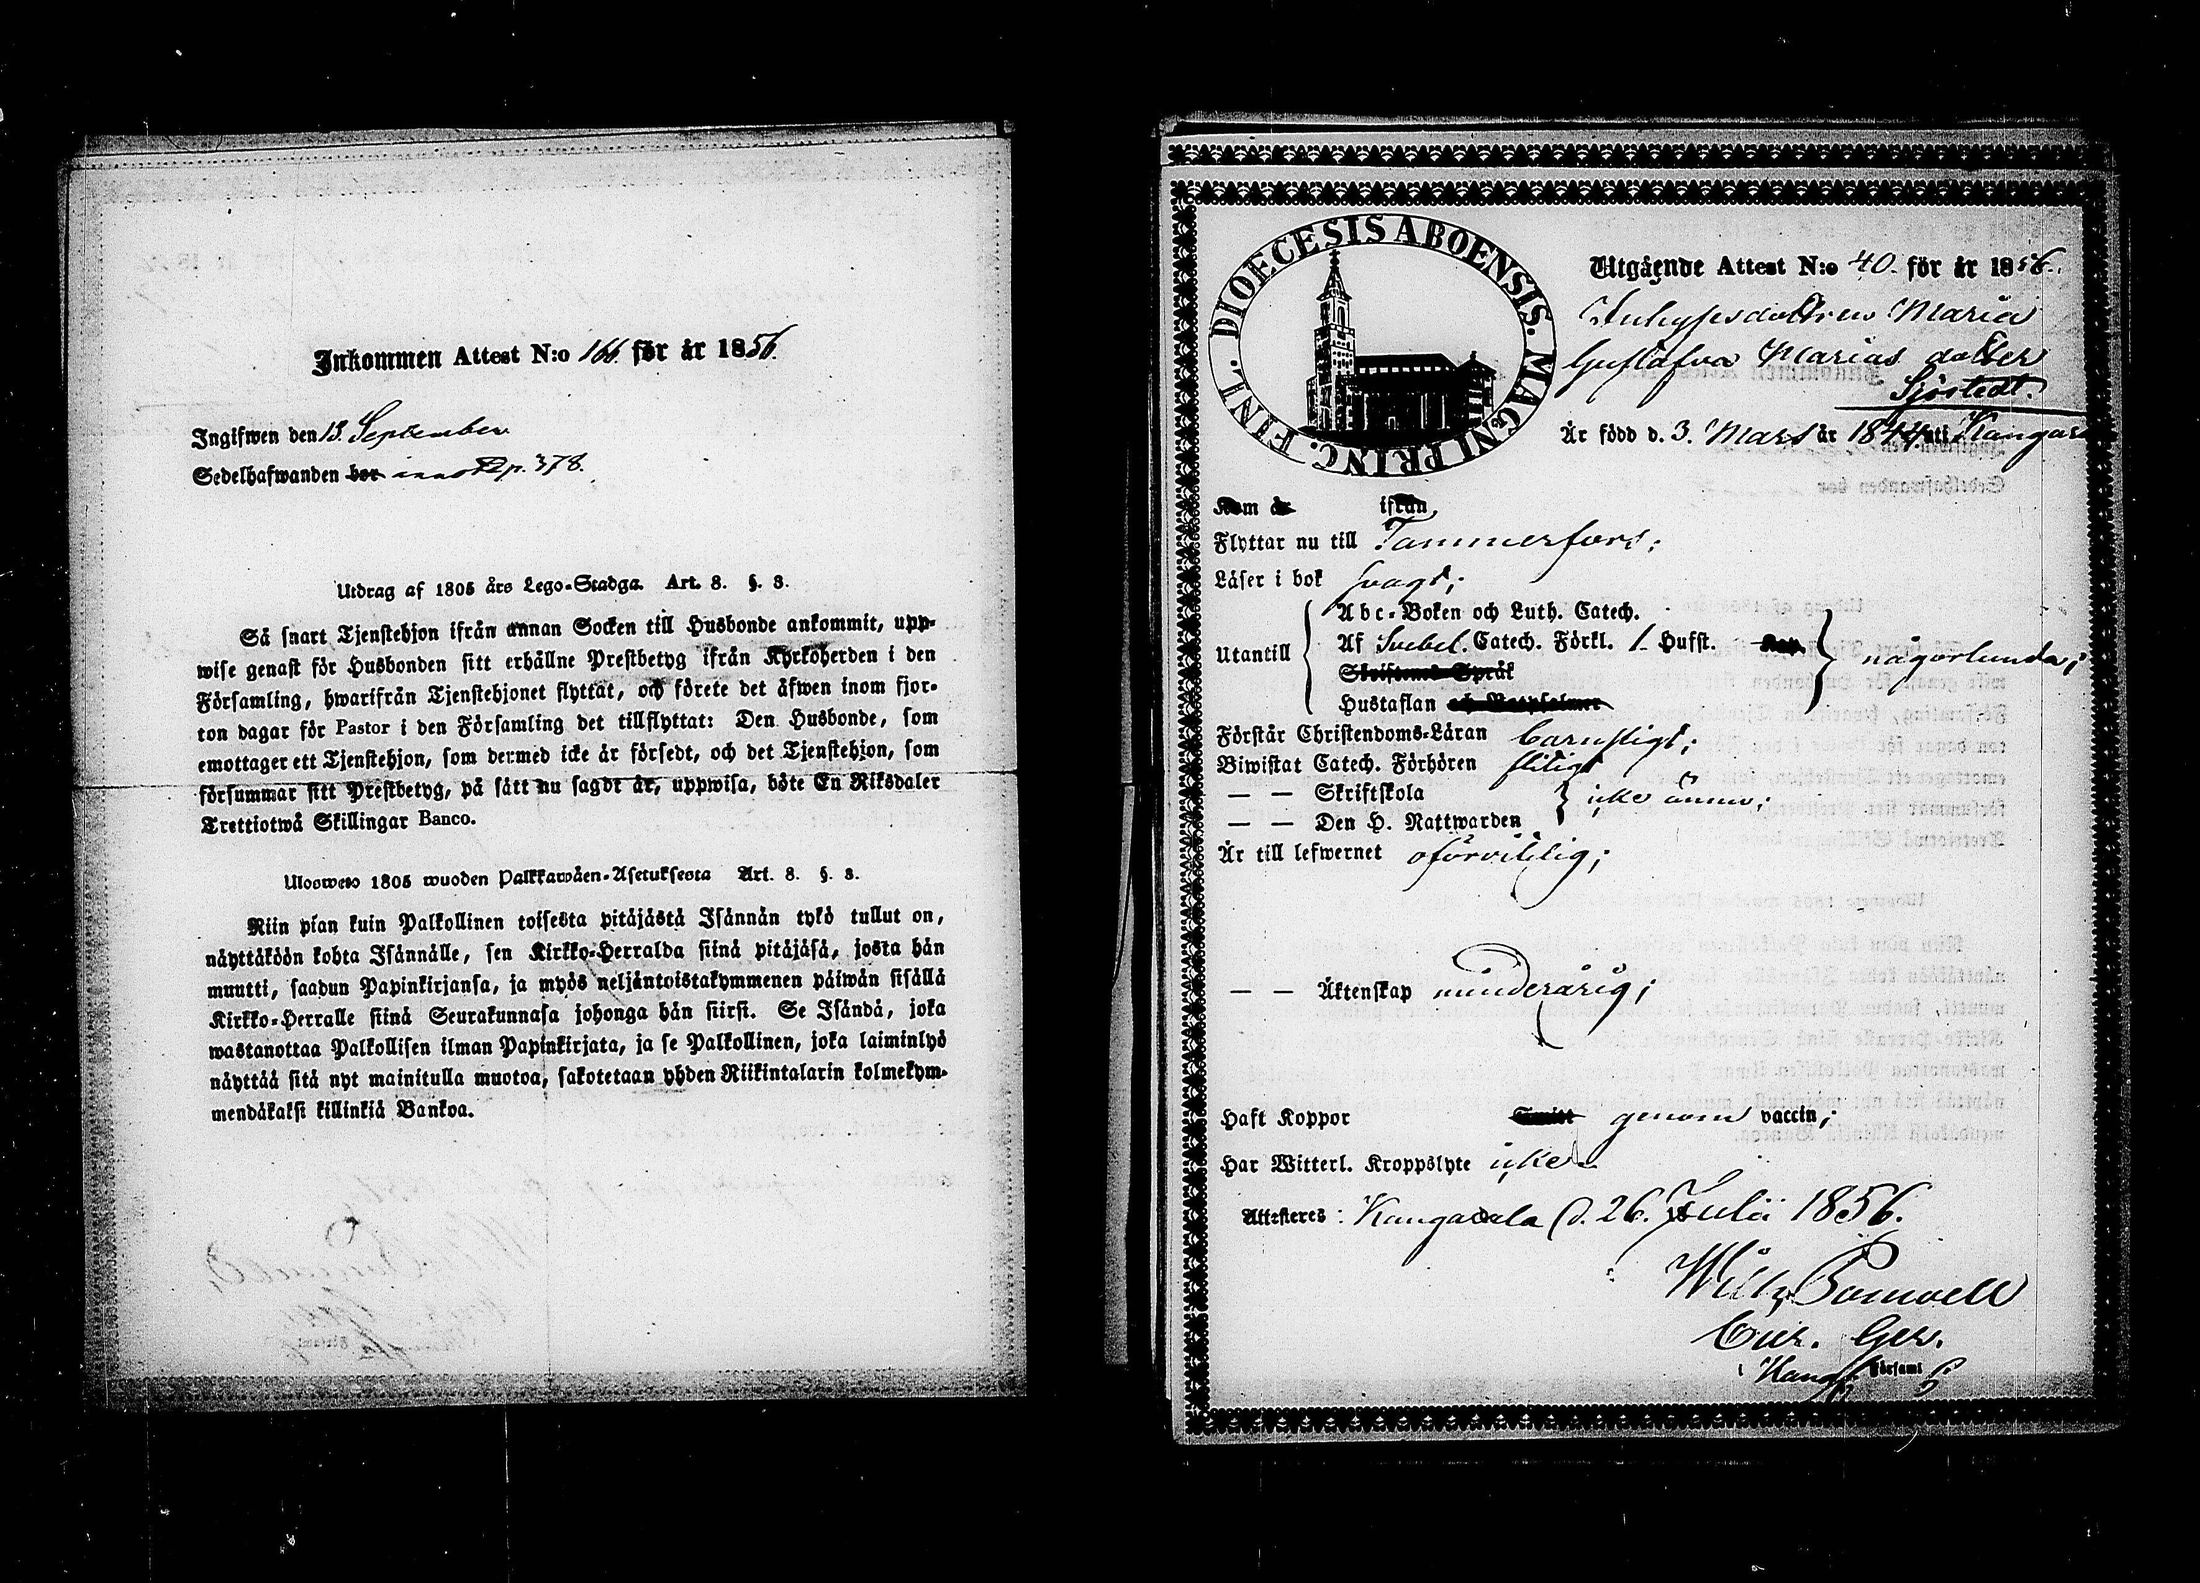 Inkommen Attest N:o 166 för år 1856.
Ingifwen den 13. September
Sedelhafwanden bor p. 378.
Utdrag af 1805 års Lego-Stadga. Art. 8. §. 3.
Så snart Tjenstehjon ifrån annan Socken till Husbonde ankommit, upp-
wise genast för Husbonden sitt erhållne Prestbetyg ifrån Kyrkoherden i den
Församling, hwarifrån Tjenstehjonet flyttat, och förete det äfwen inom fjor-
ton dagar för Pastor i den Församling det tillflyttat: Den Husbonde, som
emottager ett Tjenstehjon, som dermed icke är försedt, och det Tjenstehjon, som
försummar sitt Prestbetyg, på sätt nu sagdt är, uppwisa, böte En Riksdaler
Trettiotwå Skillingar Banco.
Ulosweto 1805 wuoden Palkkawäen-Asetuksesta Art. 8. §. 3.
Niin pian kuin Palkollinen toisesta pitäjästä Isännän tykö tullut on,
näyttäköön kohta Isännälle, sen Kirkko-Herralda siinä pitäjäsä, josta hän
muutti, saadun Papinkirjansa, ja myös neljäntoistakymmenen päiwän sisällä
Kirkko-Herralle siinä Seurakunnasa johonga hän siirsi. Se Isändä, joka
wastanottaa Palkollisen ilman Papinkirjata, ja se Palkollinen, joka laiminlyö
näyttää sitä nyt mainitulla muotoa, sakotetaan yhden Riikintalarin kolmekym-
mendäkaksi killinkiä Bankoa.
DIOECESIS ABOENSIS. MAGNI PRINC. FINL.
Utgående Attest N:o 40. för år 1856.
Inhysesdottren Maria
Gustafva Marias dotter
Sjöstedt.
Är född d. 3. Mars år 1844. uti Kangas
Kom år ifrån
Flyttar nu till Tammerfors;
Läser i bok svagt;
Utantill Abc-Boken och Luth. Catech.
Af Svebel. Catech. Förkl. 1. Hufst. Kap. någorlunda;
Skriftenes Språk
Hustaflan och Botpsalmer
Förstår Christendoms-Läran barnsligt;
Biwistat Catech. Förhören flitigt
— — Skriftskola icke ännu;
— — Den H. Nattwarden
Är till lefwernet oförvitlig;
— — Äktenskap minderårig;
Haft Koppor genom vaccin;
Har Witterl. Kroppslyte icke.
Attesteres: Kangasala d. 26. Julii 1856.
Wilh. Bonwell
Cur. Ger.
i Kang. Församl